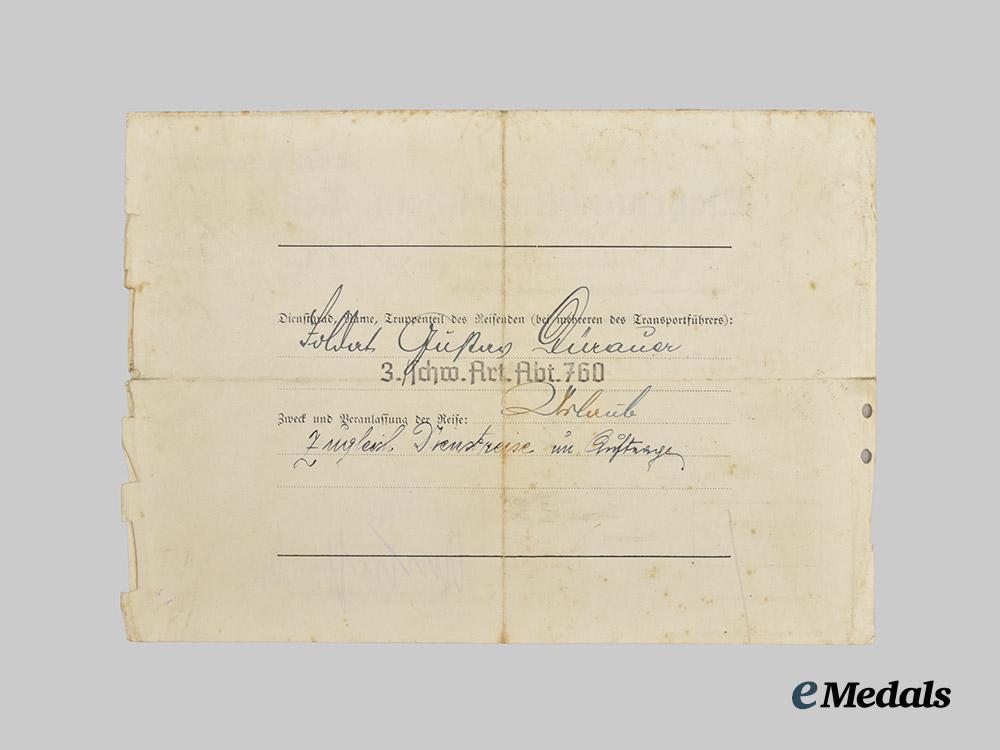 Dienstgrad, Name, Truppenteil des Reisenden (bei mehreren des Transportführers):
Soldat Gustav Dürauer
3./schw. Art. Abt. 760
Urlaub
Zweck und Veranlassung der Reise:
Zugleich Dienstreise im Auftrage
eMedals